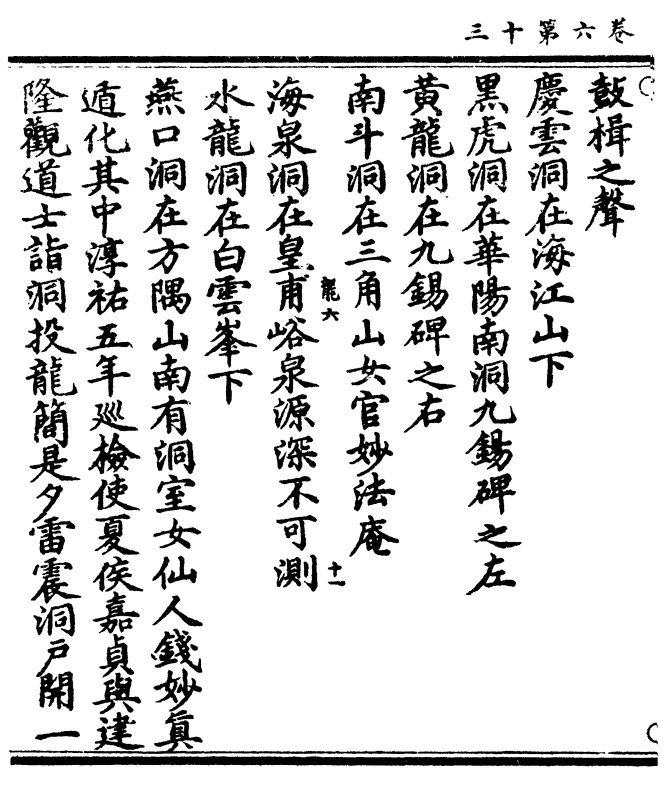 卷六第十三
鼓楫之聲
慶雲洞在海江山下
黑虎洞在華陽南洞九錫碑之左
黃龍洞在九錫碑之右
南斗洞在三角山女官妙法庵
龍六
十一
海泉洞在皇甫峪泉源深不可測
水龍洞在白雲峯下
燕口洞在方隅山南有洞室女仙人錢妙真
遁化其中淳祐五年巡檢使夏侯嘉貞與建
隆觀道士詣洞投龍簡是夕雷震洞戶開一